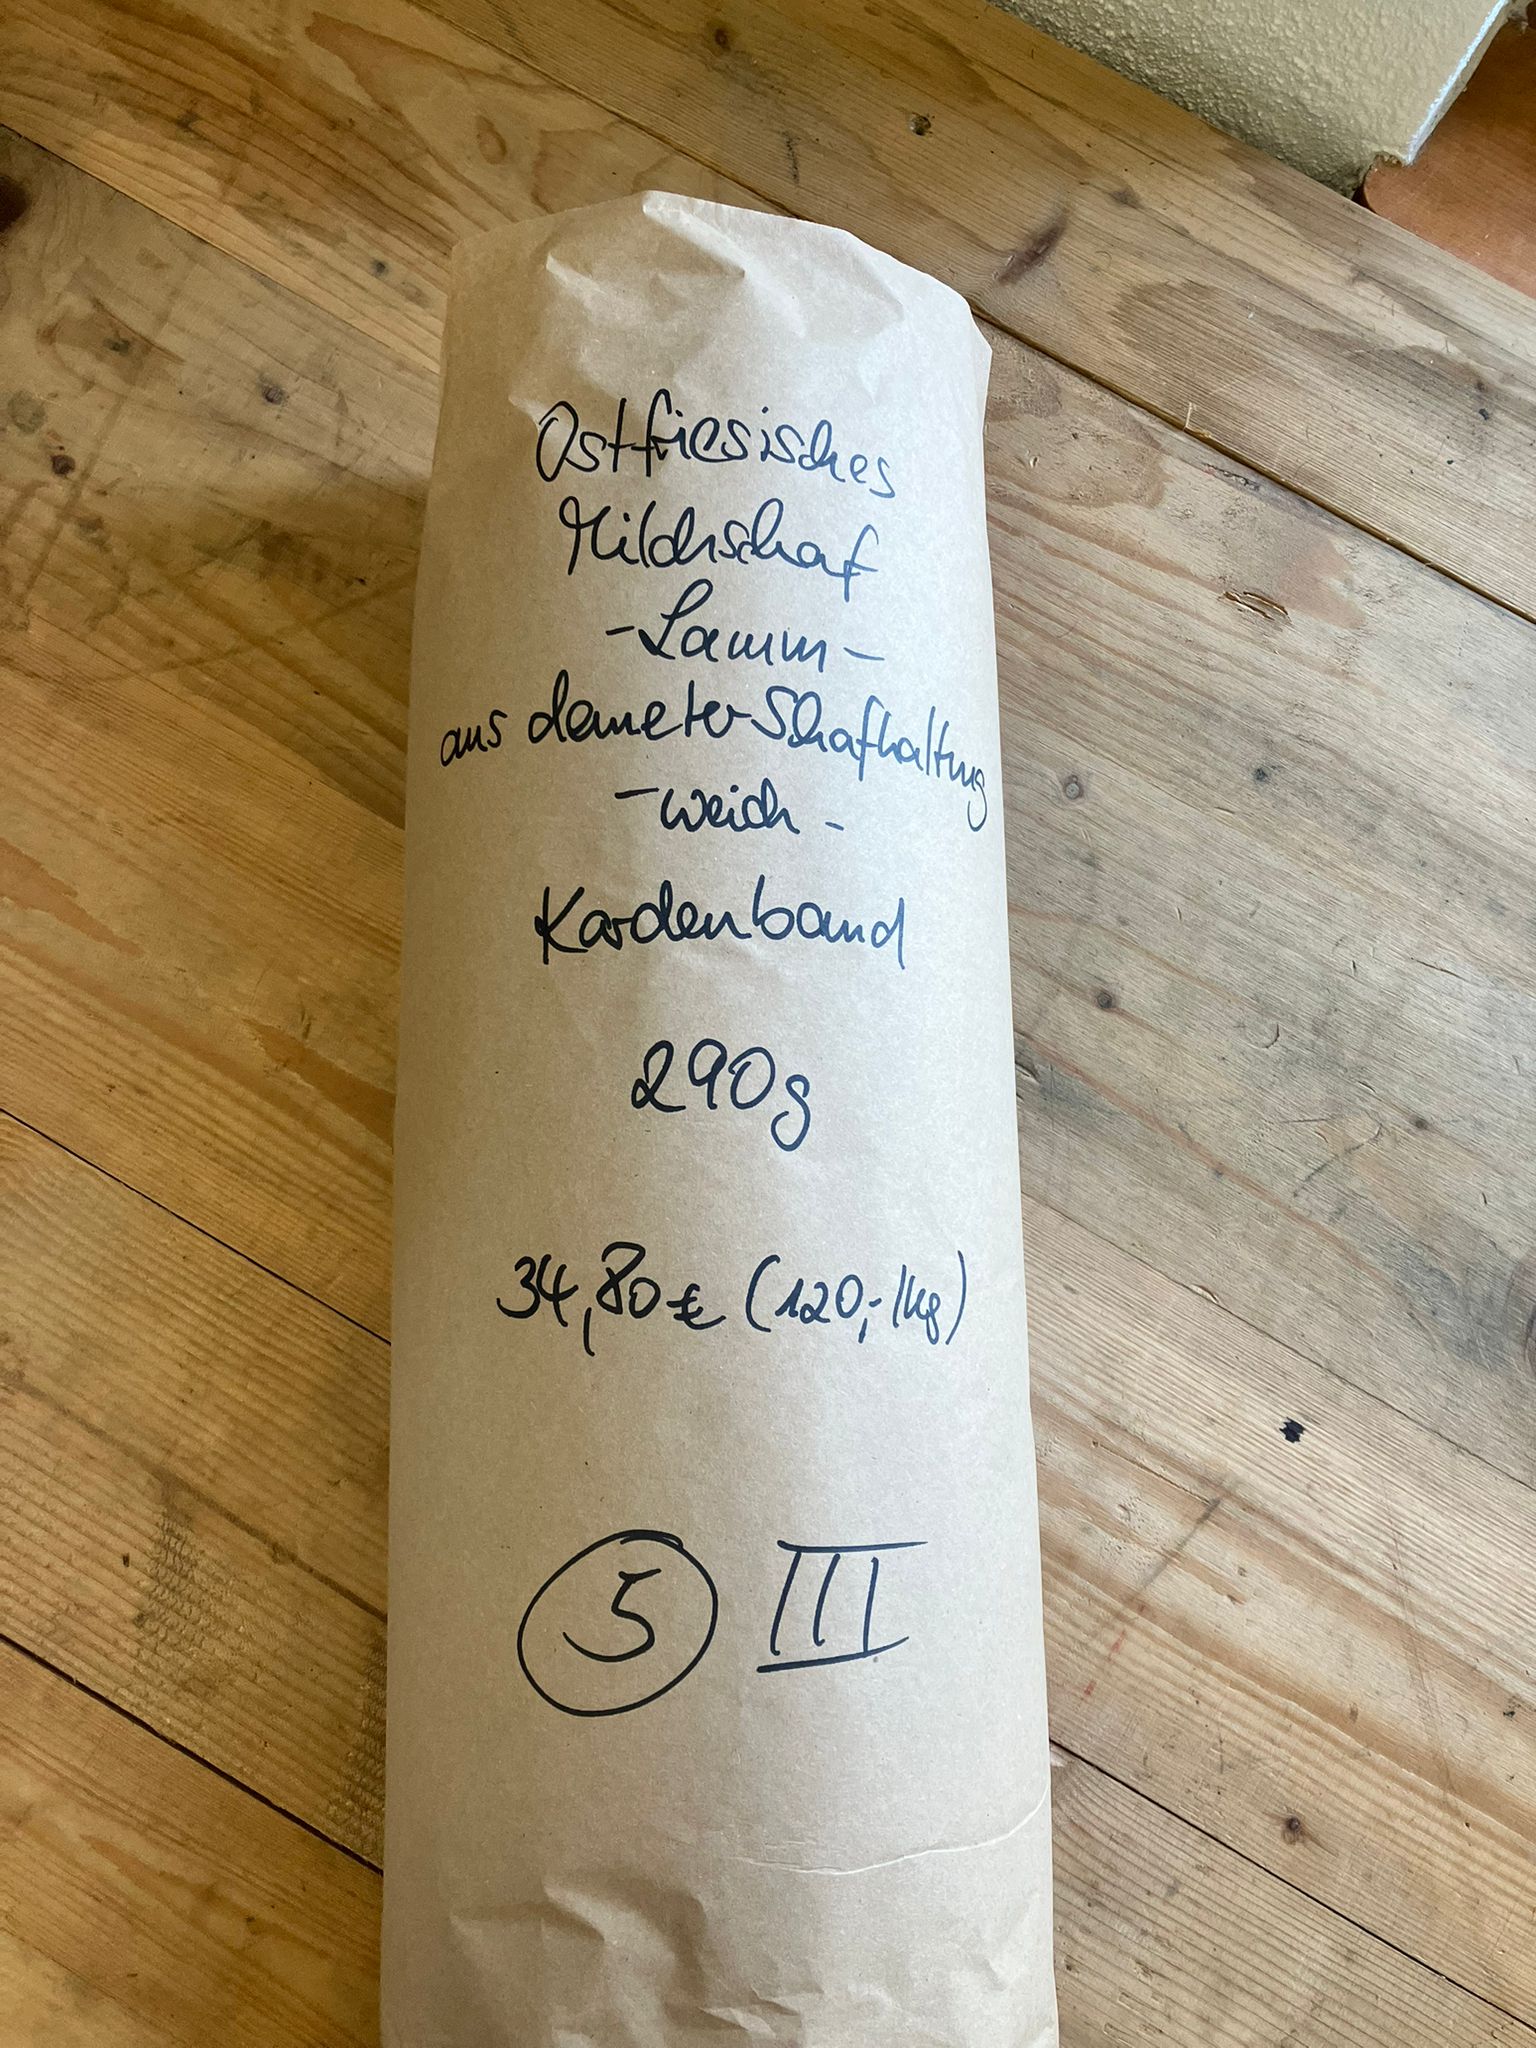 Ostfriesisches
Milchschaf
-Lamm-
aus demeter Schafhaltung
-weich-
Kardenband
290g
34,80€ (120,-/kg)
5 III